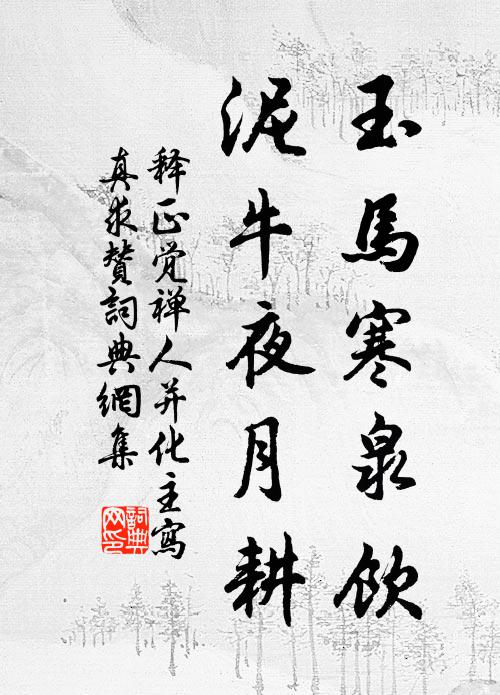 玉馬寒泉飲
泥牛夜月耕
释正觉禅人并化主寫
真求贊詞典網集
詞典
网印